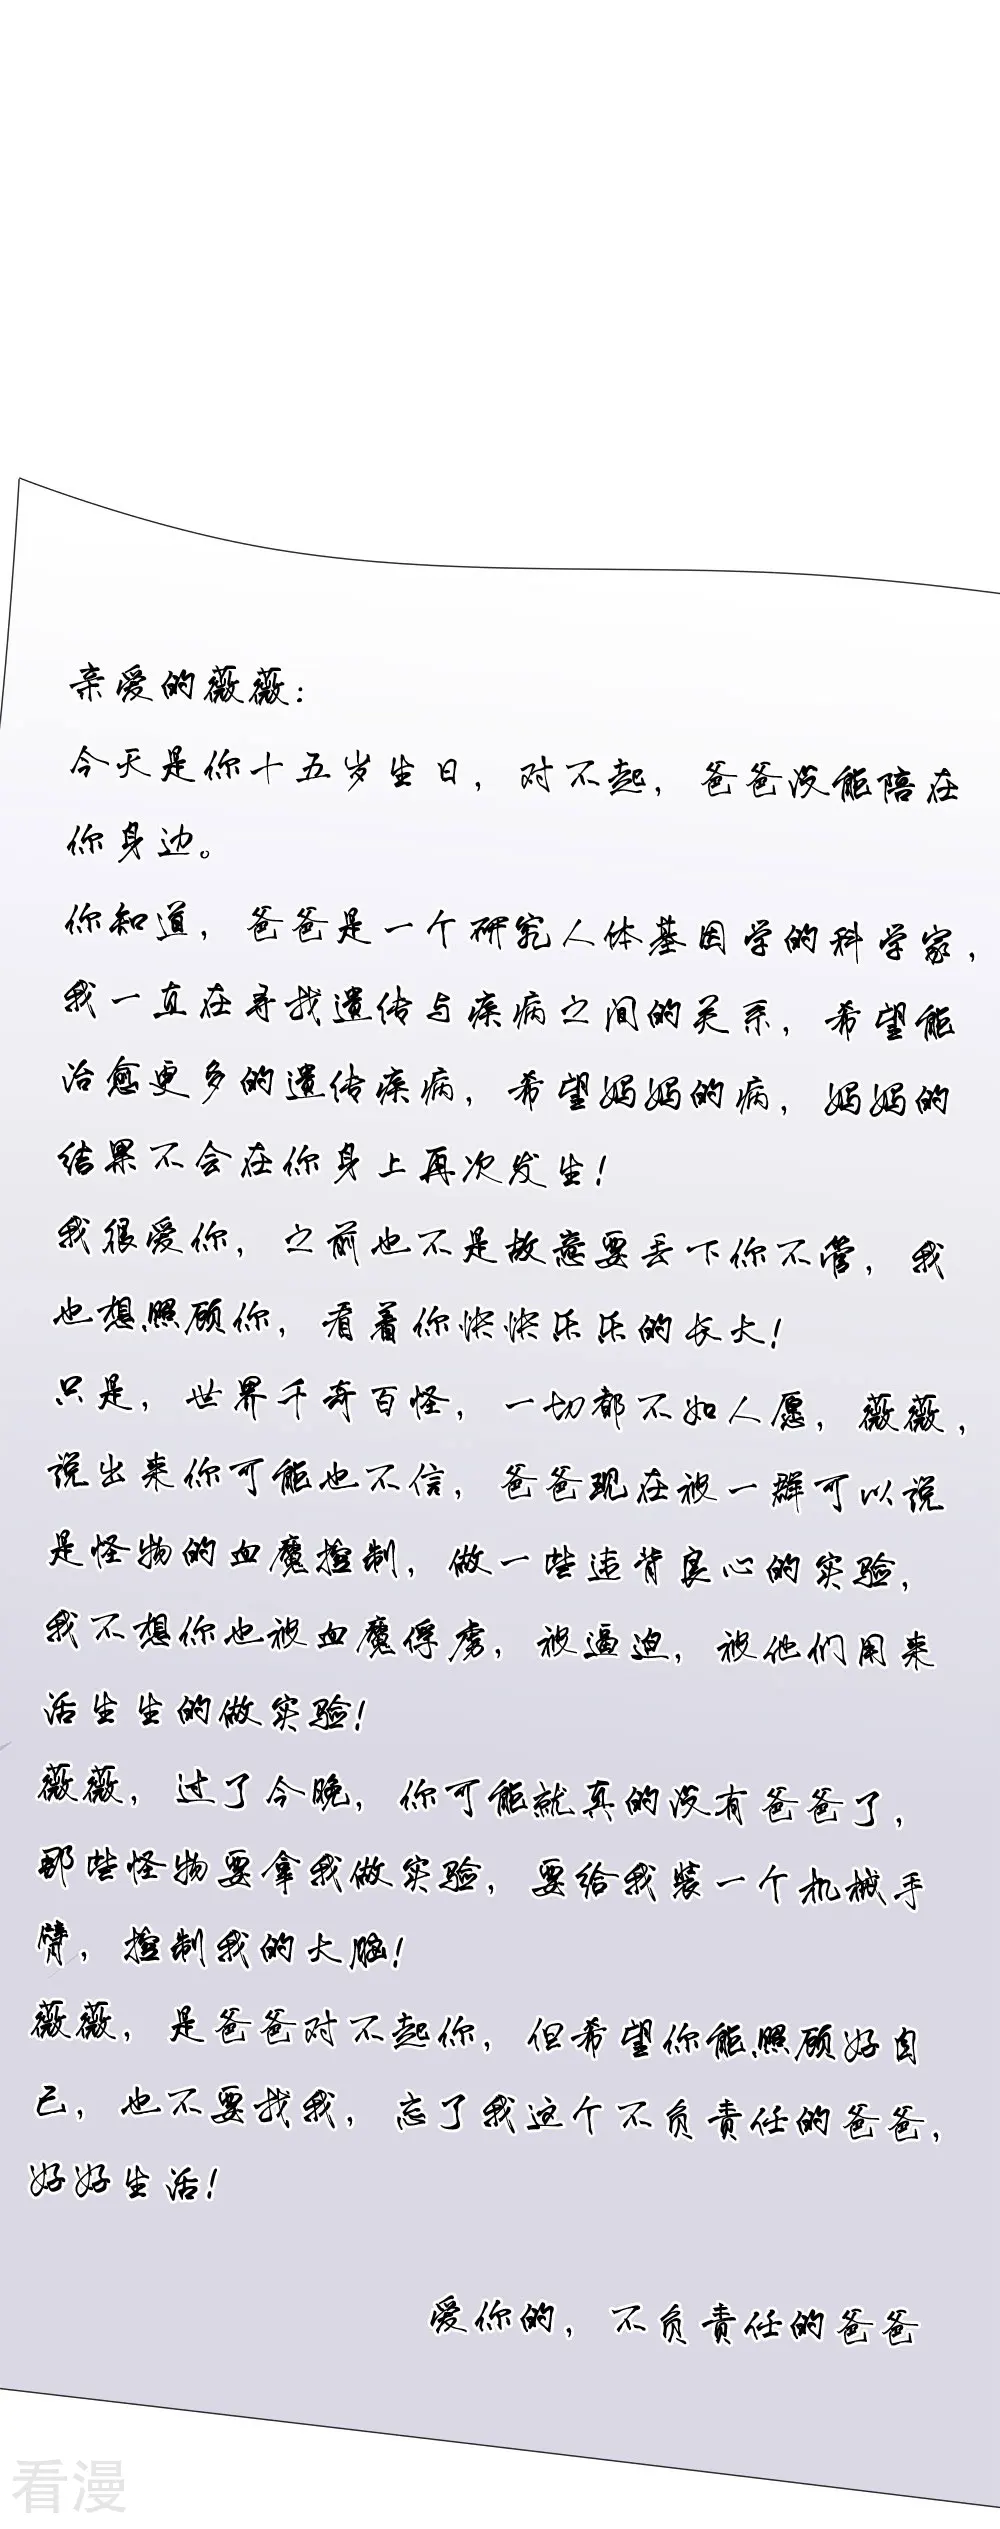 亲爱的薇薇：
今天是你十五岁生日，对不起，爸爸没能陪在
你身边。
你知道，爸爸是一个研究人体基因学的科学家，
我一直在寻找遗传与疾病之间的关系，希望能
治愈更多的遗传疾病，希望妈妈的病，妈妈的
结果不会在你身上再次发生！
我很爱你，之前也不是故意要丢下你不管，我
也想照顾你，看着你快快乐乐的长大！
只是，世界千奇百怪，一切都不如人愿，薇薇，
说出来你可能也不信，爸爸现在被一群可以说
是怪物的血魔控制，做一些违背良心的实验，
我不想你也被血魔俘虏，被逼迫，被他们用来
活生生的做实验！
薇薇，过了今晚，你可能就真的没有爸爸了，
那些怪物要拿我做实验，要给我装一个机械手
臂，控制我的大脑！
薇薇，是爸爸对不起你，但希望你能照顾好自
己，也不要找我，忘了我这个不负责任的爸爸，
好好生活！
爱你的，不负责任的爸爸
看漫